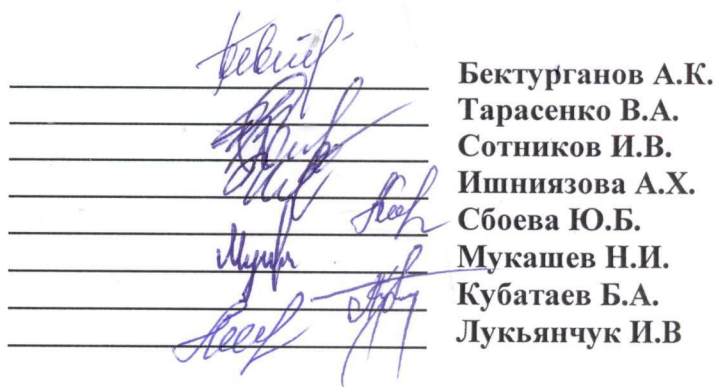 Бектурганов А.К.
Тарасенко В.А.
Сотников И.В.
Ишниязова А.Х.
Сбоева Ю.Б.
Мукашев Н.И.
Кубатаев Б.А.
Лукьянчук И.В